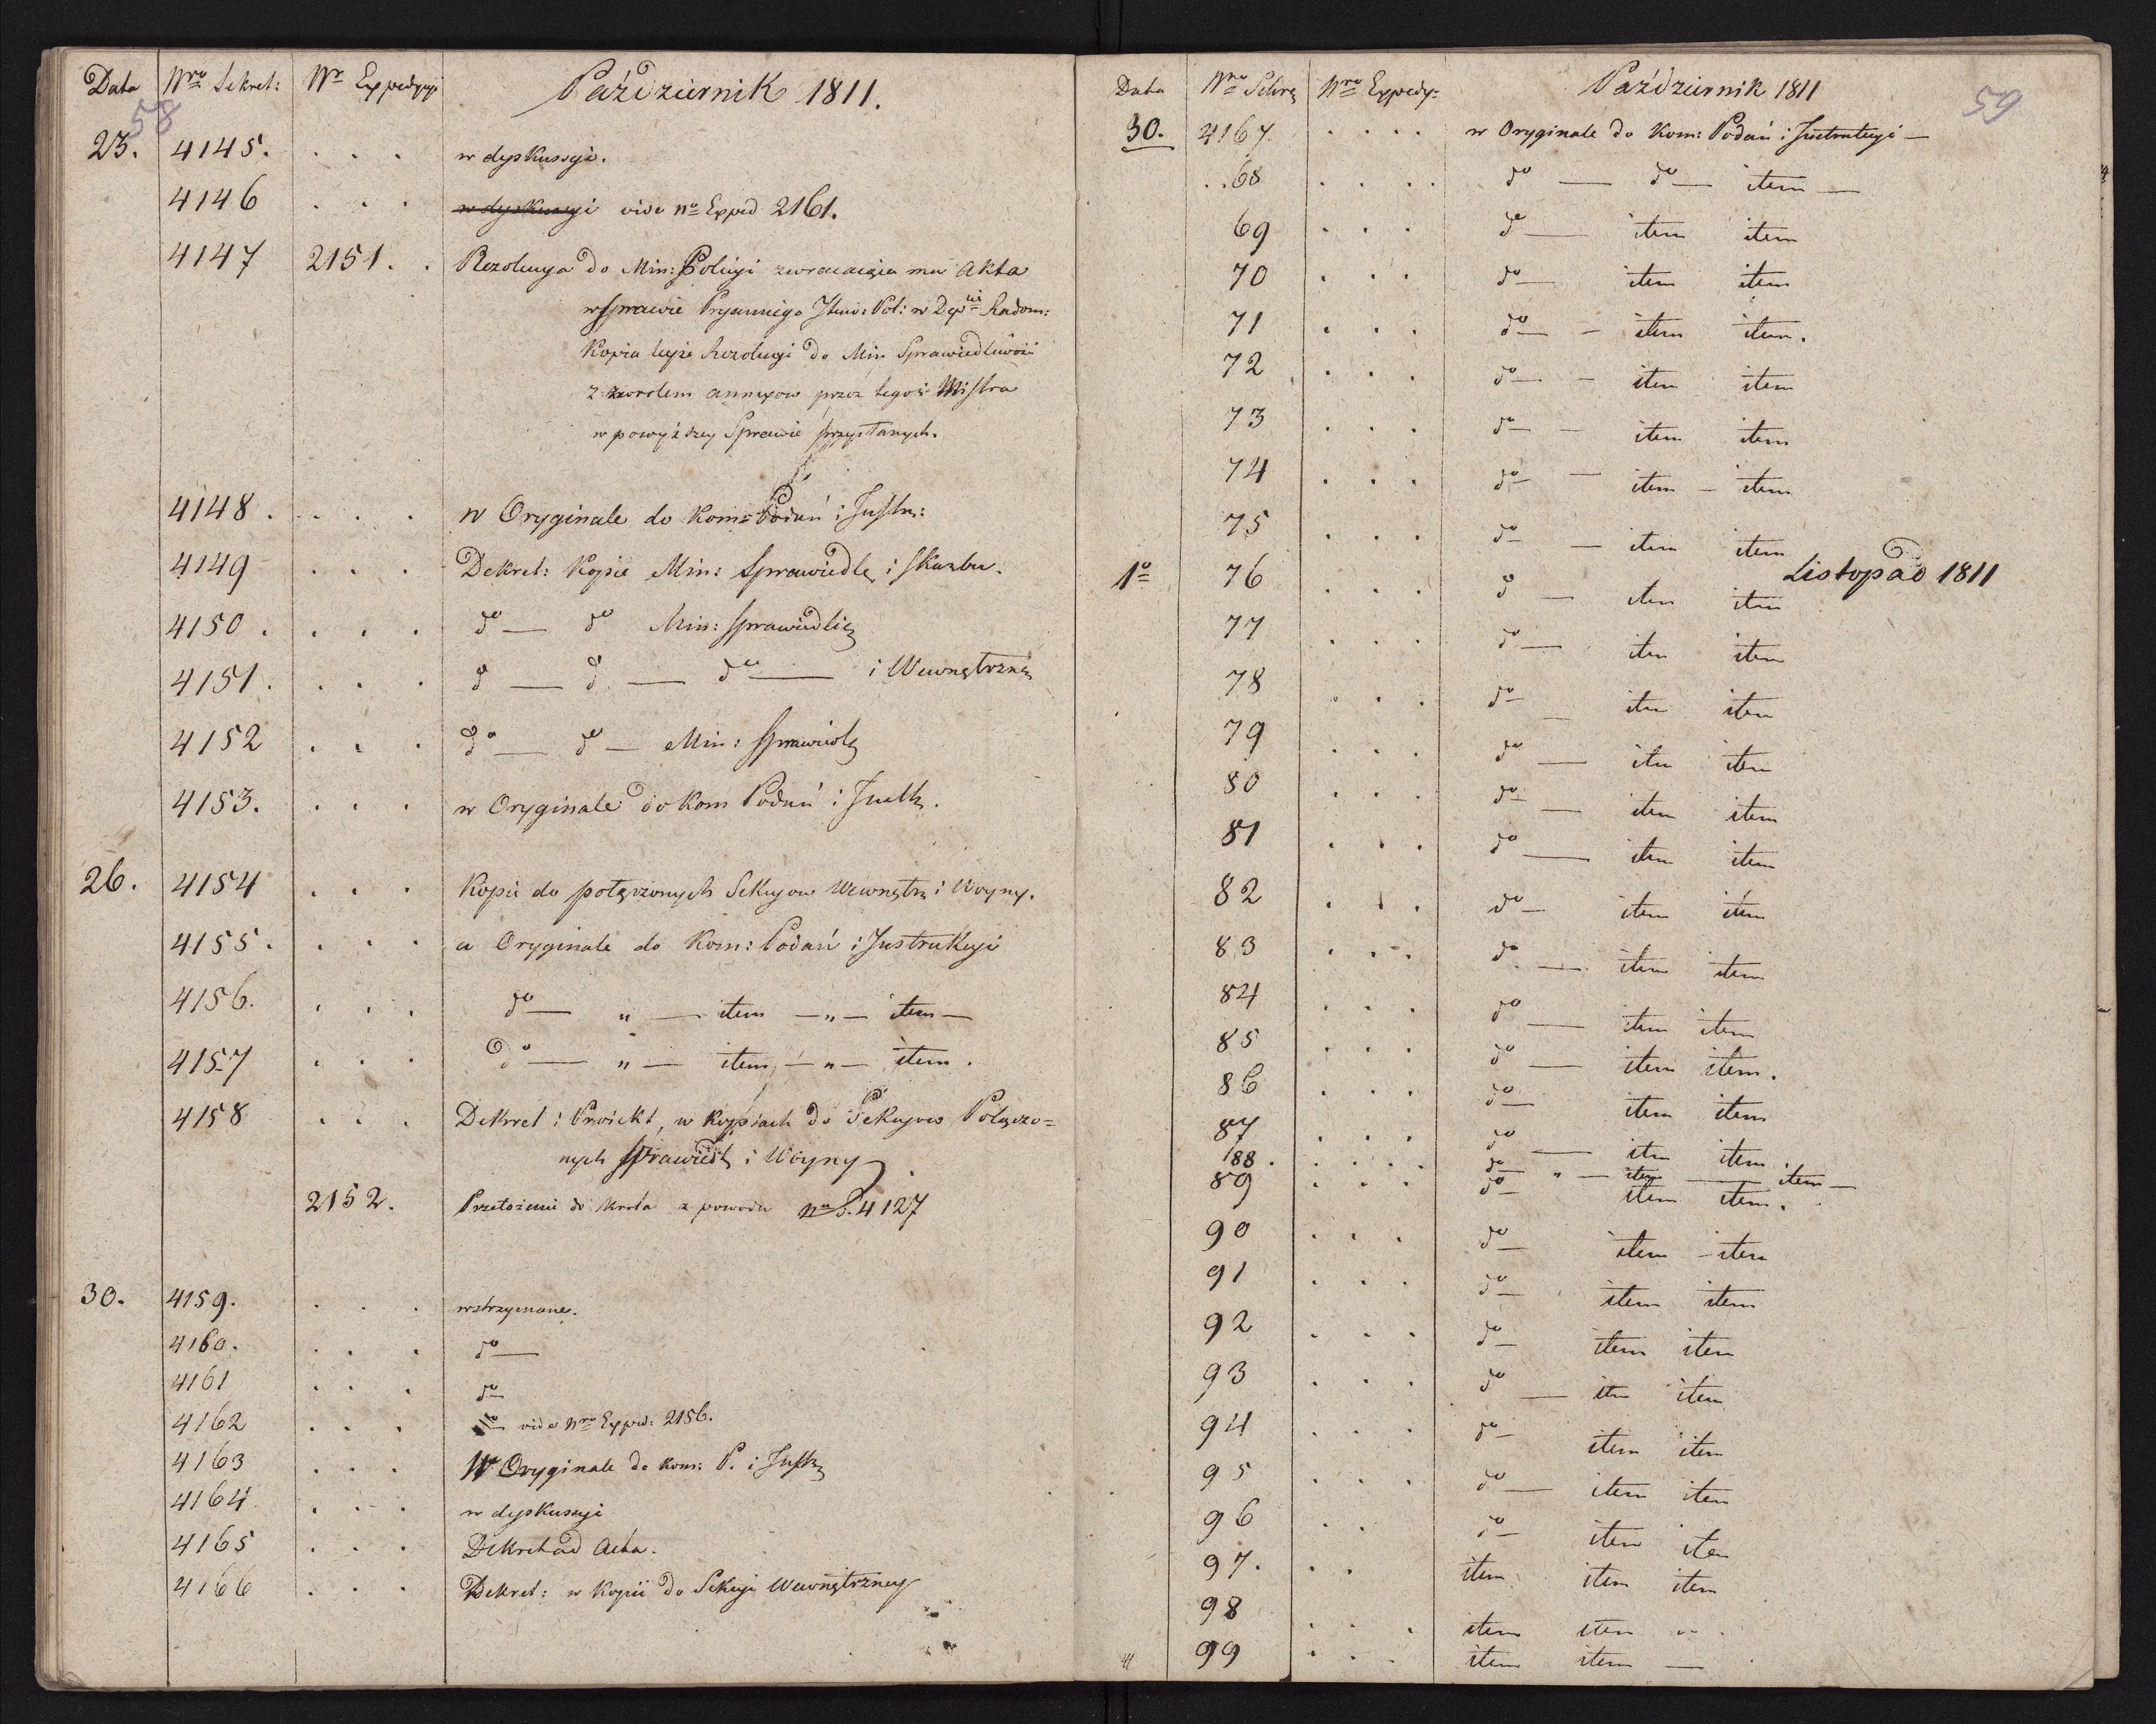 Data Nro Sekret: Nr Expedycyi Październik 1811.
58
23. 4145. . . . w dyskussyi.
4146 . . . w dyskussyi vide No Exped 2161.
4147 2151. . Rezolucya do Min: Policyi zwracaiąca mu Akta
w Sprawie Intend: Pol: w Dep Radom:
Kopia teyże Rezolucyi do Min Sprawiedliwości
z zwrotem annexow przez tegoż Mistra
w powyższey Sprawie przysłanych.
4148. . . . W Oryginale do Kom: Podań i Instr:
4149 . . . Dekret: Kopie Min: Sprawiedl i Skarbu.
4150. . . . do — do Min: Sprawiedliw
4151. . . . do — do — do — i Wewnętrzn
4152 . . . do — do — Min: Sprawiedl
4153. . . . w Oryginale do Kom Podań i Instr.
26. 4154 . . . Kopie do połączonych Sekcyow Wewnętrz i Woyny.
4155. . . . a Oryginale do Kom: Podań i Instrukcyi
4156. . . . do — „ — item — „ — item —
4157 . . . do — „ — item, — „ — item.
4158 . . . Dekret i Proiekt, w kopiach do Sekcyow Połączo=
nych Sprawiedl i Woyny.
2152. Przełożenie do Krola z powodu No S. 4127
30. 4159. . . . wstrzymane.
4160. . . . do —
4161 . . . do
4162 . . . do vide Nro Exped: 2156.
4163 . . . W Oryginale do Kom: P. i Instr
4164 . . . w dyskussyi
4165 . . . Dekret ad Acta.
4166 . . . Dekret: w Kopii do Sekcyi Wewnętrzney
Data Nro Sekre Nro Expedy= Październik 1811
59
30. 4167. . . . . w Oryginale do Kom: Podań i Instrukcyi —
. . 68 . . . . do — do — item —
69 . . . do — item item
70 . . . do — item item
71 . . . do — – item item.
72 . . . do — – item item
73 . . . do — – item item
74 . . . do — – item – item
75 . . . do — item item
Listopad 1811
1o 76 . . . do — item item
77 . . . do — item item
78 . . . do — item item
79 . . . do — item item
80 . . . do — item item
81 . . . do — item item
82 . . . do — item item
83 . . . do — item item
84 . . . do — item item
85 . . . do — item item.
86 . . . do — item item
87 . . . do — item item.
88. . . . . do — „ — item — item —
89 . . . do — item item.
90 . . . do — item – item
91 . . . do — item item
92 . . . do — item item
93 . . . do — item item
94 . . . do — item item
95 . . . do — item item
96 . . do — item item
97. . . item item item
98 . . . item item „ .
99 . . . item item —